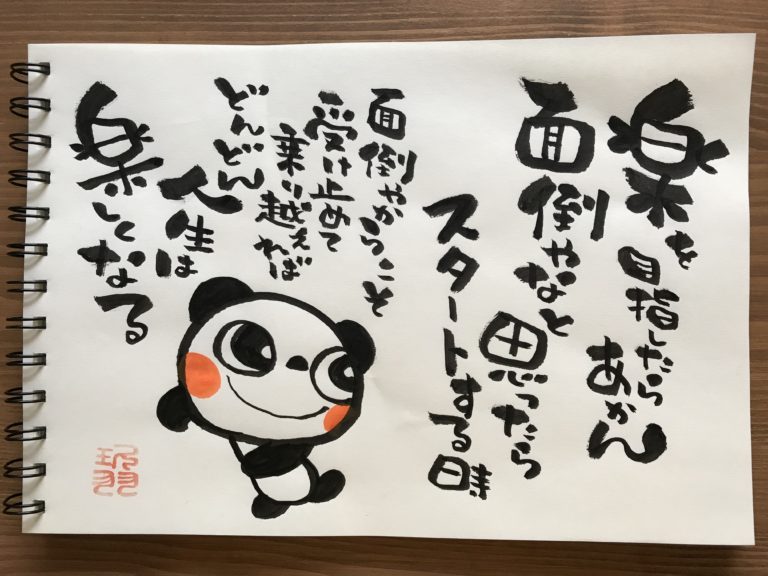 楽を
目指したら
あかん
面倒やなと
思ったら
スタートする時
面倒やからこそ
受け止めて
乗り越えれば
どんどん
人生は
楽しくなる